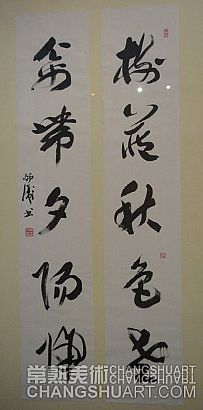 樹藏秋色老
禽帶夕陽歸
常熟美術 CHANGSHUART
CHANGSHUART.COM